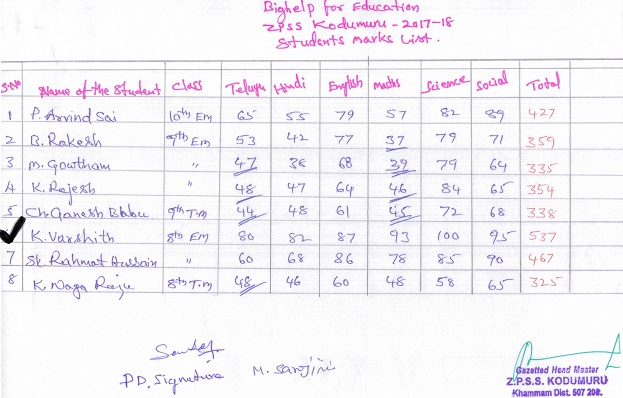 Bighelp for Education
ZPSS Kodumuru - 2017-18
Students Marks List.
S.No Name of the Student Class Telugu Hindi English maths Science Social Total
1 P. Arvind Sai 10th Em 65 55 79 57 82 89 427
2 B. Rakesh 9th Em 53 42 77 37 79 71 359
3 M. Goutham " 47 38 68 39 79 64 335
4 K. Rajesh " 48 47 64 46 84 65 354
5 Ch. Ganesh Babu 9th T.m 44 48 61 45 72 68 338
K. Varshith 8th Em 80 82 87 93 100 95 537
7 Sk. Rahmat Hussain " 60 68 86 78 85 90 467
8 K. Naga Raju 8th T.m 48 46 60 48 58 65 325
P.D. Signature M. Sarojini
Gazetted Head Master
Z.P.S.S. KODUMURU
Khammam Dist. 507 208.